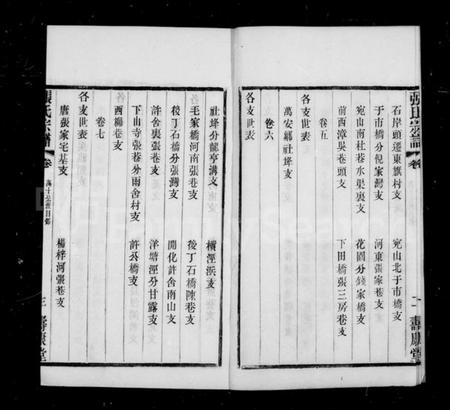 石岸頭遷東旗村支　宛山北于市橋支
于市橋分倪家灣支　河東張家巷支
宛山南杜巷水渠裏支　花園分錢家橋支
前西漳吳巷頭支　下田橋張三房巷支
卷五
各支世表
萬安鄉社埄支
卷六
各支世表
社埄分龍亭溝支　橫涇浜支
毛家橋河南張巷支　後丁石橋陳巷支
後丁石橋分張灣支　開化許舍南山支
許舍裏張巷支　洋塘涇分甘露支
下山寺張巷分雨舍村支　許公橋支
西鄉巷支
卷七
各支世表
唐張家宅基支　楊梓河張巷支
張氏宗譜
卷
三
壽康堂
二
壽康堂